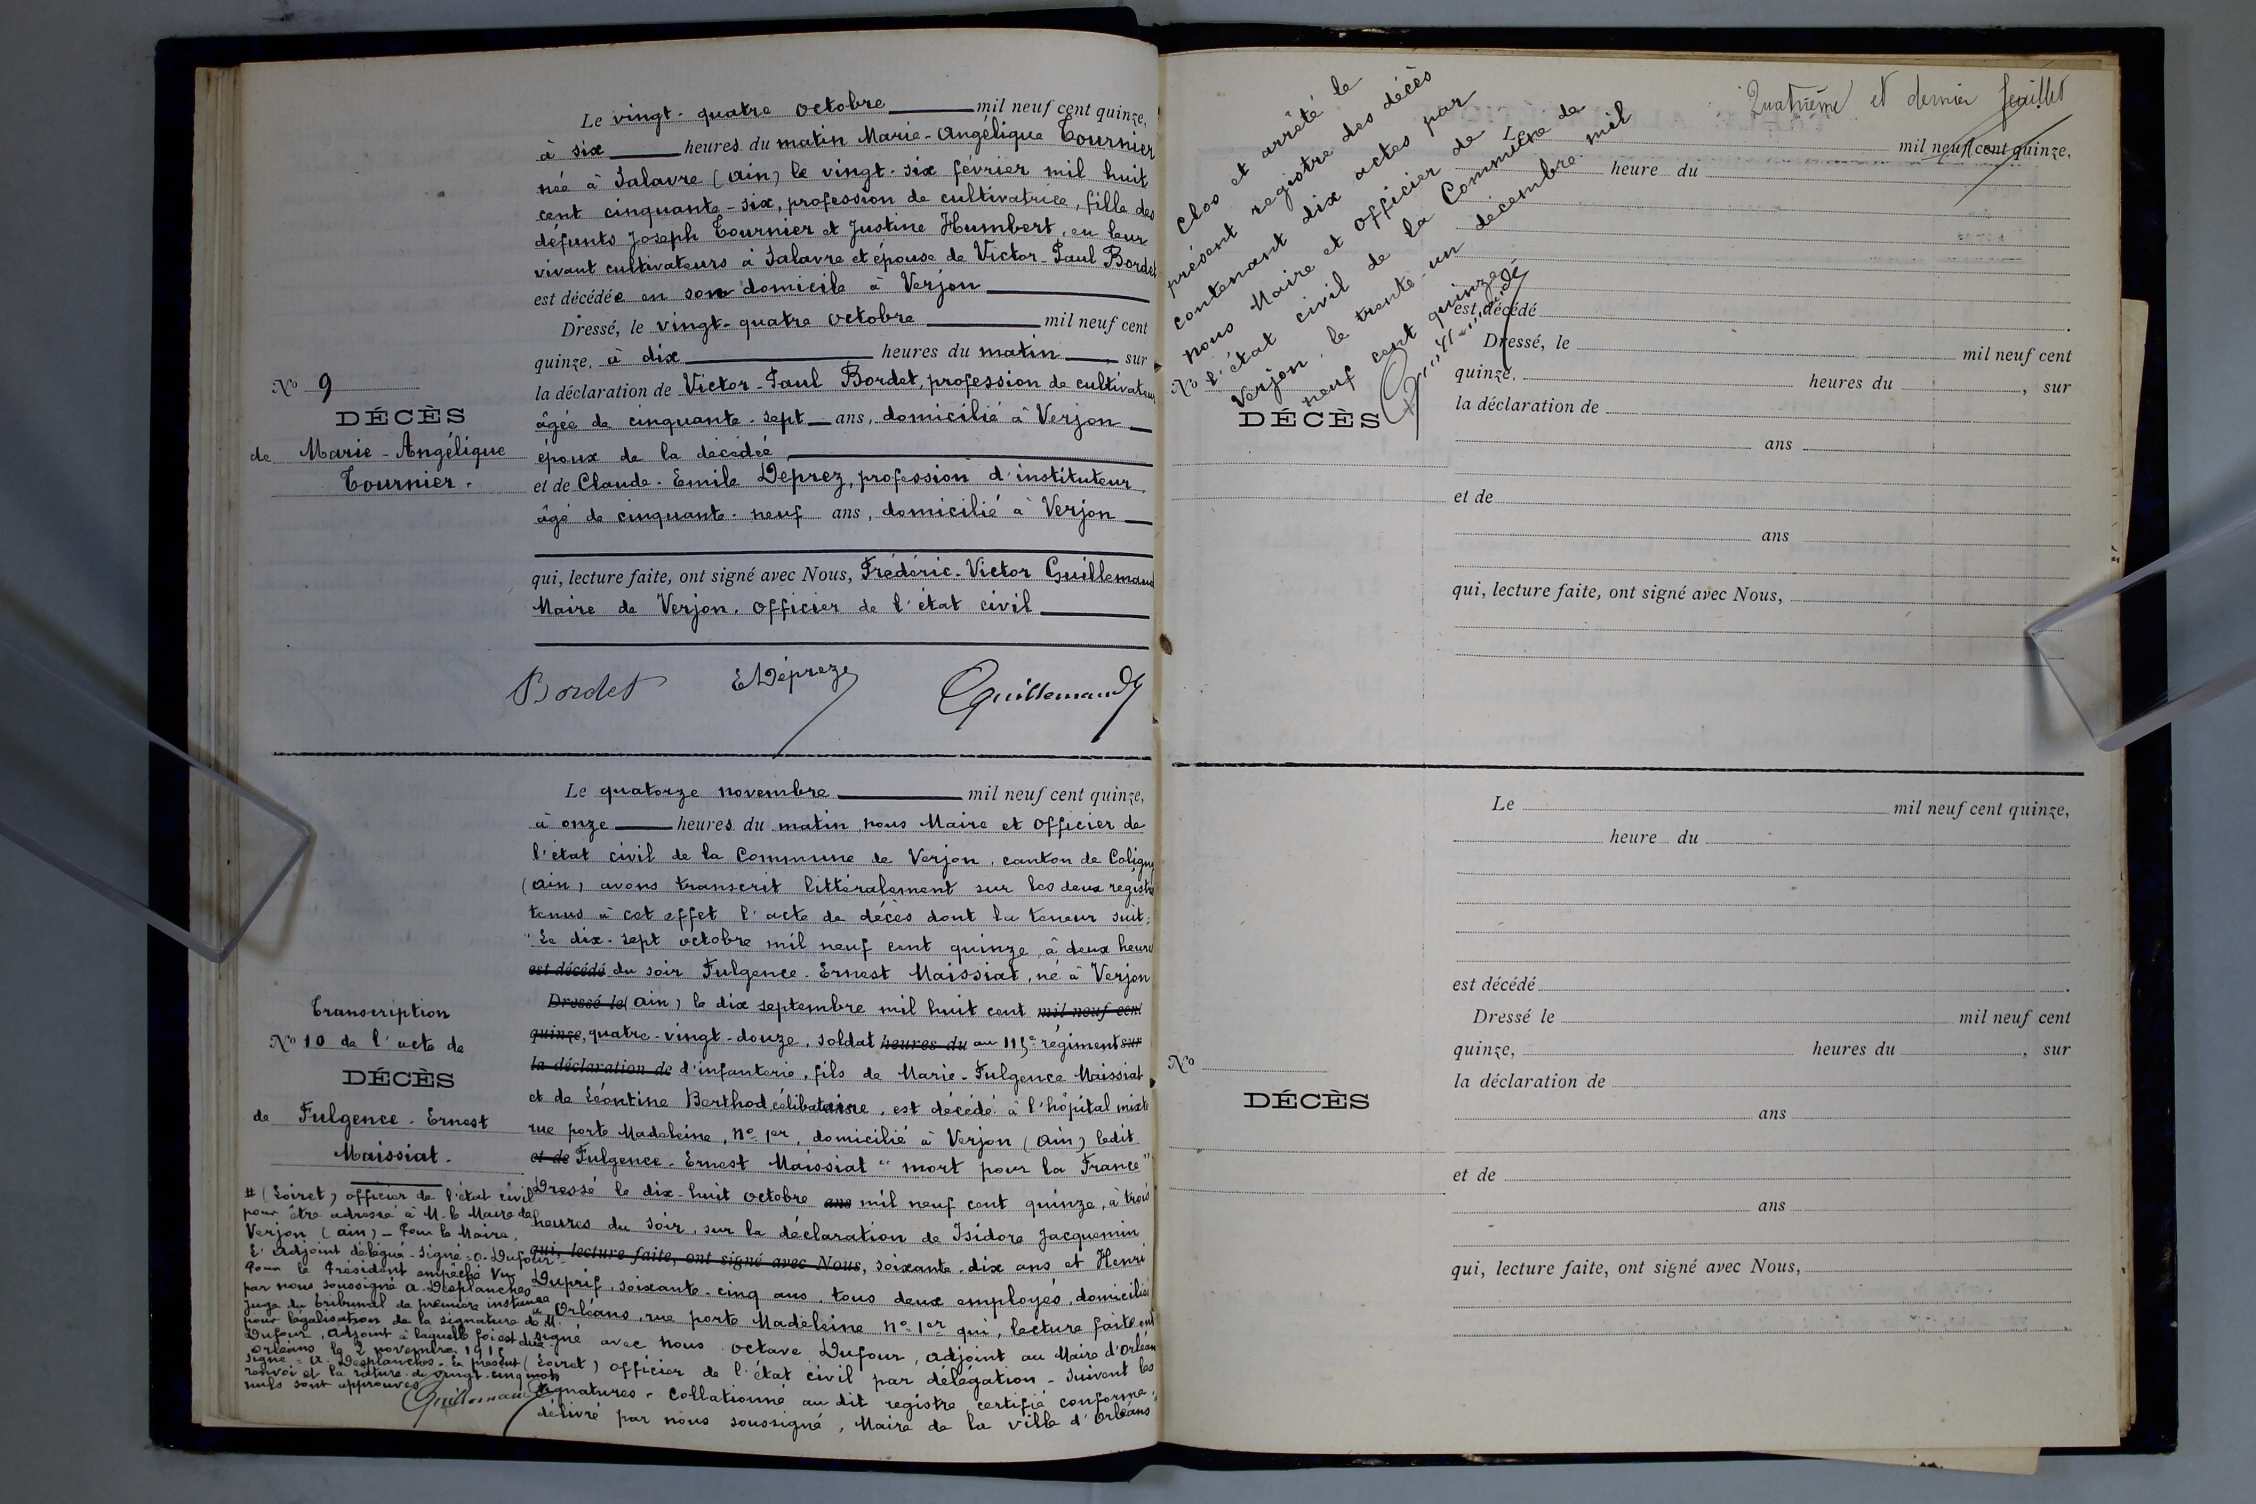 Le vingt-quatre octobre mil neuf cent quinze,
à six heures du matin Marie-Angélique Tournier
née à Salavre (ain) le vingt-six février mil huit
cent cinquante-six, profession de cultivatrice, fille des
défunts Joseph Tournier et Justine Humbert, en leur
vivant cultivateurs à Salavre et épouse de Victor-Paul Bordet
est décédée en son domicile à Verjon
Dressé, le vingt-quatre octobre mil neuf cent
quinze, à dix heures du matin, sur
la déclaration de Victor-Paul Bordet, profession de cultivateur
âgée de cinquante-sept ans, domicilié à Verjon
époux de la décédée
et de Claude-Emile Deprez, profession d'instituteur
âgé de cinquante-neuf ans, domicilié à Verjon
qui, lecture faite, ont signé avec Nous, Frédéric-Victor Guillemaud
Maire de Verjon, officier de l'état civil
Bordet EDéprez Guillemaud
No 9
DÉCÈS
de Marie-Angélique
Tournier.
Le quatorze novembre mil neuf cent quinze,
à onze heures du matin, nous Maire et officier de
l'état civil de la Commune de Verjon, canton de Coligny
(ain) avons transcrit littéralement sur les deux registres
tenus à cet effet l'acte de décès dont la teneur suit:
"Le dix-sept octobre mil neuf cent quinze, à deux heures
est décédé du soir Fulgence-Ernest Maissiat, né à Verjon
Dressé le (ain) le dix septembre mil huit cent mil neuf cent
quinze, quatre-vingt-douze, soldat heures du au 115e régiment sur
la déclaration de d'infanterie, fils de Marie-Fulgence Maissiat
et de Léontine Berthod célibataire, est décédé à l'hôpital mixte
rue porte Madeleine, no 1er, domicilié à Verjon (ain) ledit
et de Fulgence-Ernest Maissiat "mort pour la France"
Dressé le dix-huit octobre ans mil neuf cent quinze, à trois
heures du soir, sur la déclaration de Isidore Jacquemin
qui, lecture faite, ont signé avec Nous, soixante-dix ans et Henri
Duprif, soixante-cinq ans, tous deux employés, domiciliés
à Orléans, rue porte Madeleine no 1er qui, lecture faite ont
signé avec nous octave Dufour, adjoint au Maire d'Orléans
(Loiret) officier de l'état civil par délégation - Suivent les
signatures - Collationné au dit registre certifié conforme,
délivré par nous soussigné, Maire de la ville d'Orléans
Transcription
No 10 de l'acte de
DÉCÈS
de Fulgence-Ernest
Maissiat.
# (Loiret) officier de l'état civil
pour être adressé à M. le Maire de
Verjon (ain) - Pour le Maire,
L'adjoint délégué - signé: o. Dufour
Pour le Président empêché Vu
par nous soussigné A. Desplanches
juge du tribunal de première instance
pour légalisation de la signature de M.
Dufour, adjoint à laquelle foi est due
Orléans le 2 novembre 1915
signé: A. Desplanches - Le présent
renvoi et la rature de vingt-cinq mots
nuls sont approuvés
Guillemaud
Quatrième et dernier feuillet
Clos et arrêté le
présent registre des décès
contenant dix actes par
nous Maire et officier de
l'état civil de la Commune de
Verjon, le trente-un décembre mil
neuf cent quinze
Guillemaud
Le mil neuf cent quinze,
heure du
est décédé
Dressé, le mil neuf cent
quinze, heures du , sur
la déclaration de
ans
et de
ans
qui, lecture faite, ont signé avec Nous,
No
DÉCÈS
Le mil neuf cent quinze,
heure du
est décédé
Dressé le mil neuf cent
quinze, heures du , sur
la déclaration de
ans
et de
ans
qui, lecture faite, ont signé avec Nous,
No
DÉCÈS